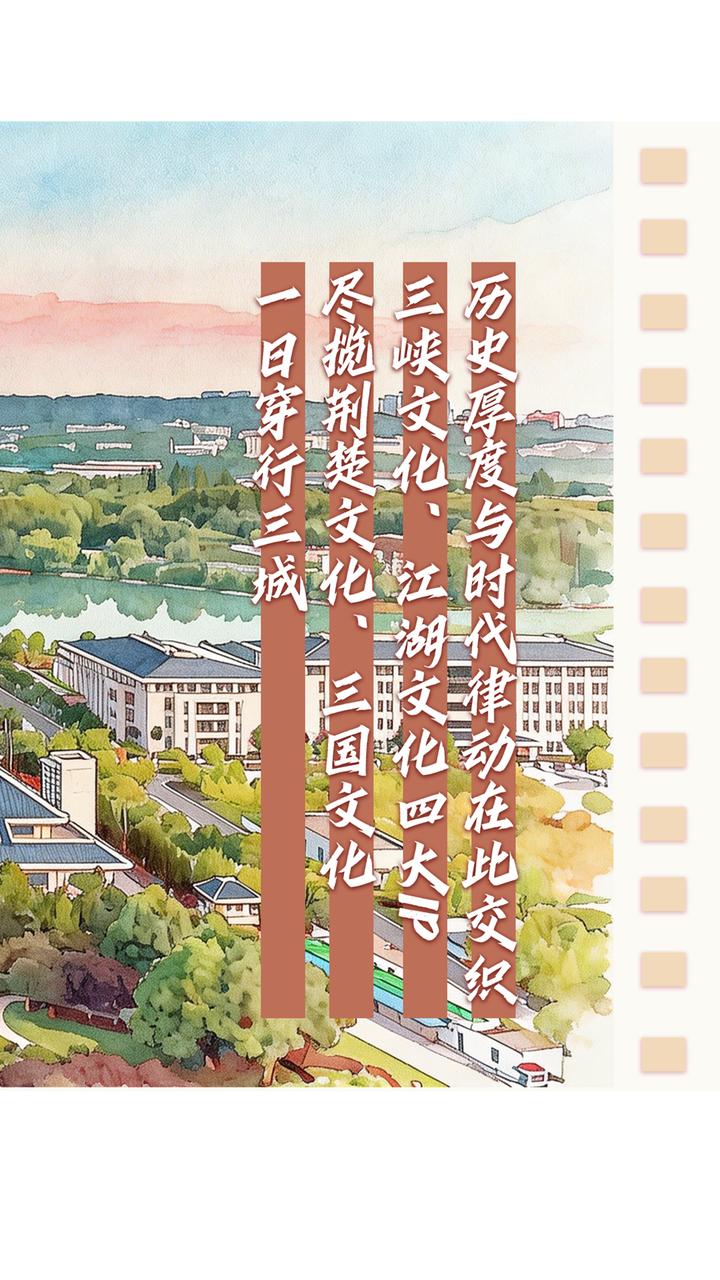 一日穿行三城
尽揽荆楚文化、三国文化
三峡文化、江湖文化四大IP
历史厚度与时代律动在此交织